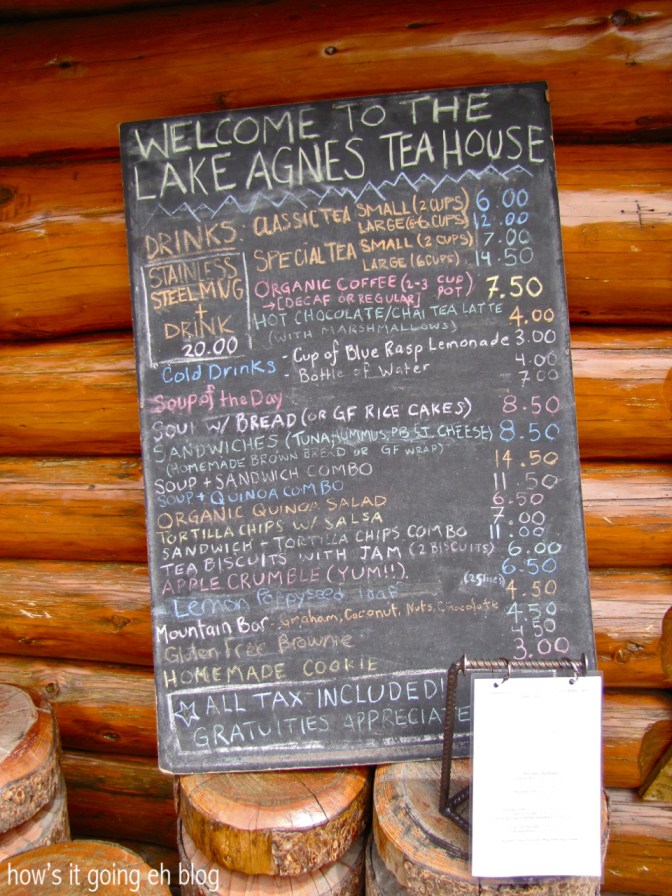 WELCOME TO THE
LAKE AGNES TEA HOUSE
DRINKS:
CLASSIC TEA SMALL (2 CUPS) 6.00
LARGE (6-6 CUPS) 12.00
SPECIAL TEA SMALL (2 CUPS) 7.00
LARGE (6 CUPS) 14.50
STAINLESS
STEEL MUG
+
DRINK
20.00
ORGANIC COFFEE (2-3 CUP POT) 7.50
→ [DECAF OR REGULAR]
HOT CHOCOLATE/CHAI TEA LATTE 4.00
(WITH MARSHMALLOWS)
Cold Drinks - Cup of Blue Rasp Lemonade 3.00
- Bottle of Water 4.00
Soup of the Day 7.00
SOUP W/ BREAD (OR GF RICE CAKES) 8.50
SANDWICHES (TUNA, HUMMUS, PB & J, CHEESE) 8.50
(HOMEMADE BROWN BREAD OR GF WRAP)
SOUP + SANDWICH COMBO 14.50
SOUP + QUINOA COMBO 11.50
ORGANIC QUINOA SALAD 6.50
TORTILLA CHIPS W/ SALSA 7.00
SANDWICH - TORTILLA CHIPS COMBO 11.00
TEA BISCUITS WITH JAM (2 BISCUITS) 6.00
APPLE CRUMBLE (YUM!!). 6.50
Lemon Poppyseed loaf (2 slices) 4.50
Mountain Bar - Graham, Coconut, Nuts, Chocolate 4.50
Gluten Free Brownie 4.50
HOMEMADE COOKIE 3.00
☆ ALL TAX INCLUDED!
GRATUITIES APPRECIATE
how's it going eh blog